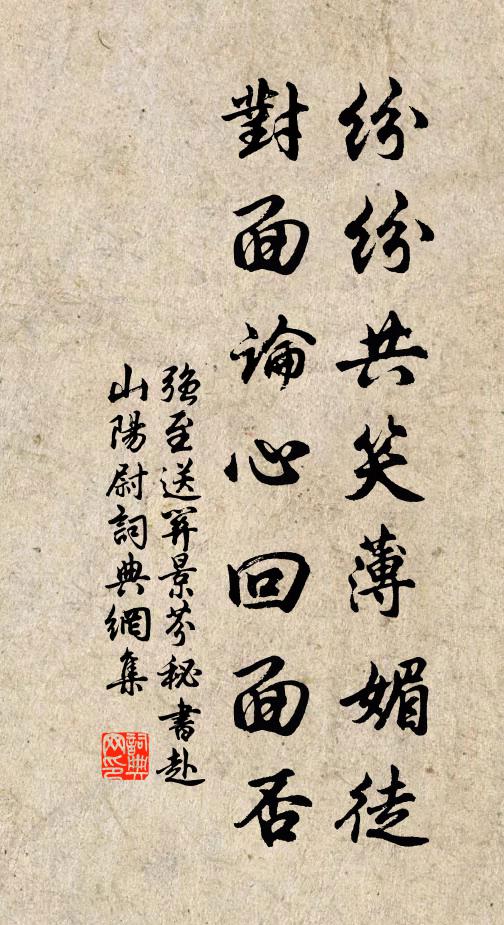 紛紛共笑薄媚徒
對面論心回面否
強至送羿景芬秘書赴
山陽尉詞典網集
詞典網印